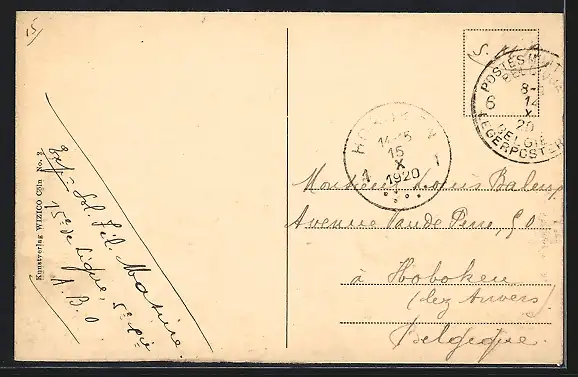 15
S. M.
POSTES MILIT
BELGIQUE
8-
6 14
X
20
BELGIE
LEGERPOSTERIJ
HOBOKEN
14-15
15
X
1 1920 1
Monsieur Louis
Avenue Van de Perre, 50
à Hoboken
(lez Anvers)
Belgique.
Kunstverlag WIZICO Cöln No. 2.
Exp: Sol. Tél.
15e de Ligne, 5e Cie
A. B. O.